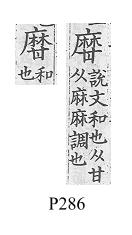 說文和也从甘
从麻麻調也
和
也
P286